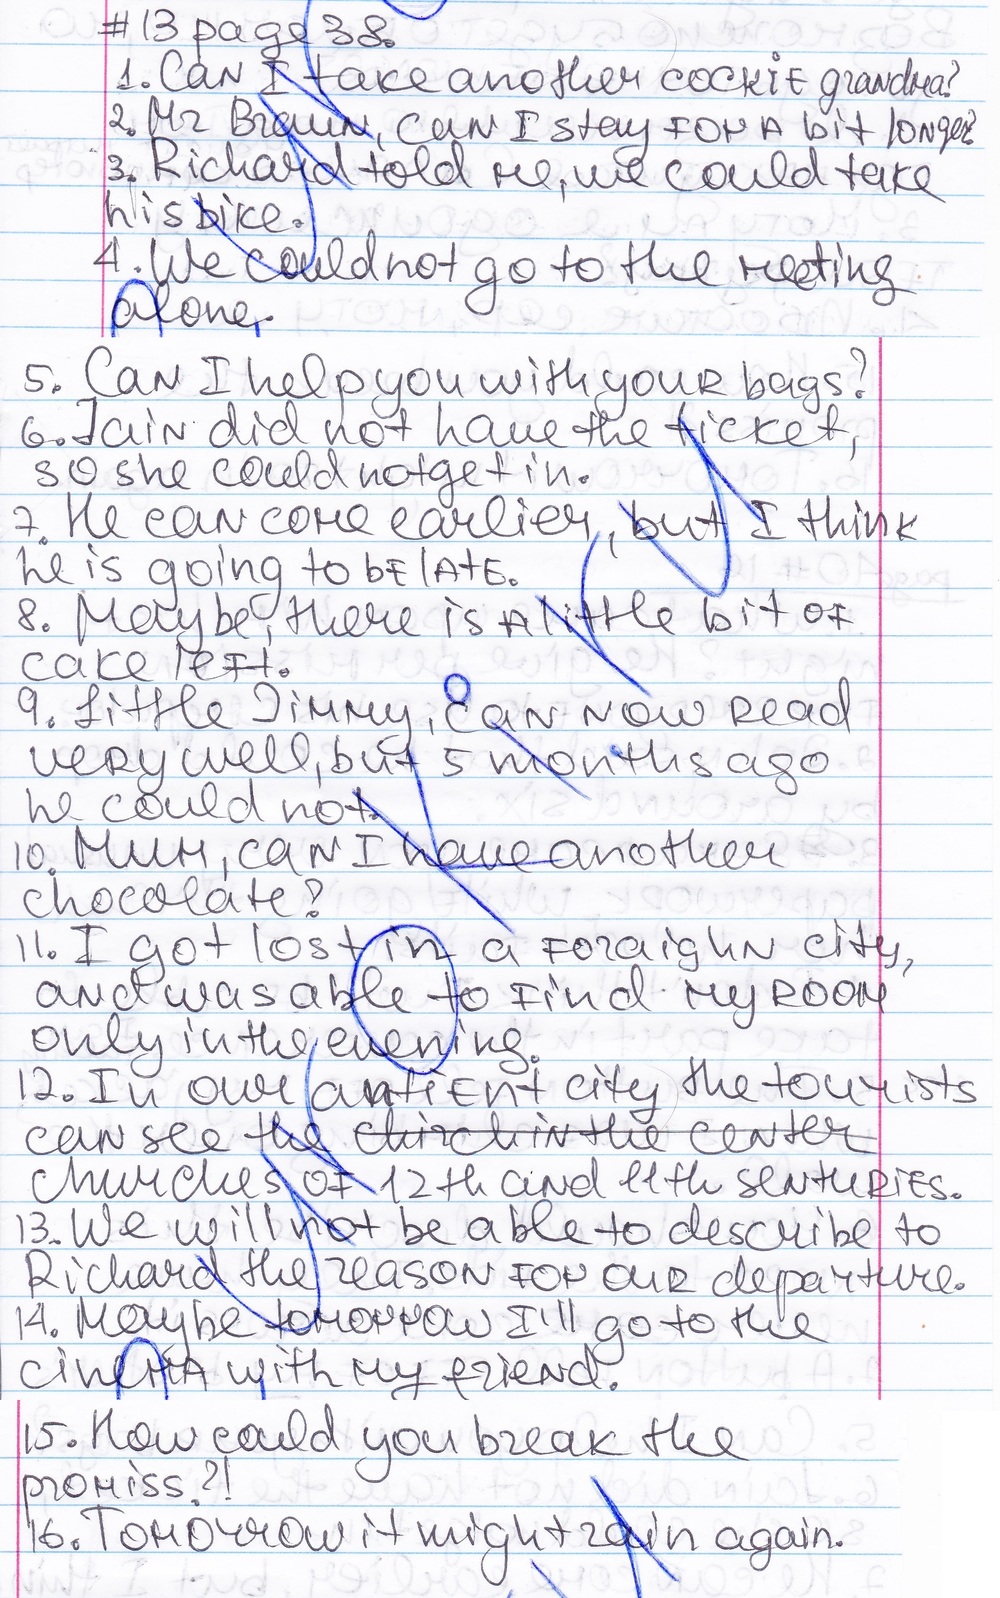 #13 page 38.
1. Can I take another cockie grandma?
2. Mr Braun, can I stay for a bit longer?
3. Richard told me, we could take
his bike.
4. We could not go to the meeting
alone.
5. Can I help you with your bags?
6. Jain did not have the ticket,
so she could not get in.
7. He can come earlier, but I think
he is going to be late.
8. Maybe, there is a little bit of
cake left.
9. Little Jimmy, can now read
very well, but 5 months ago
he could not.
10. Mum, can I have another
chocolate?
11. I got lost in a foraighn city,
and was able to find my room
only in the evening.
12. In our antient city the tourists
can see the chirch in the center
churches of 12th and 11th senturies.
13. We will not be able to describe to
Richard the reason for our departure.
14. Maybe tomorrow I'll go to the
cinema with my friend.
15. How could you break the
promiss?!
16. Tomorrow it might rain again.